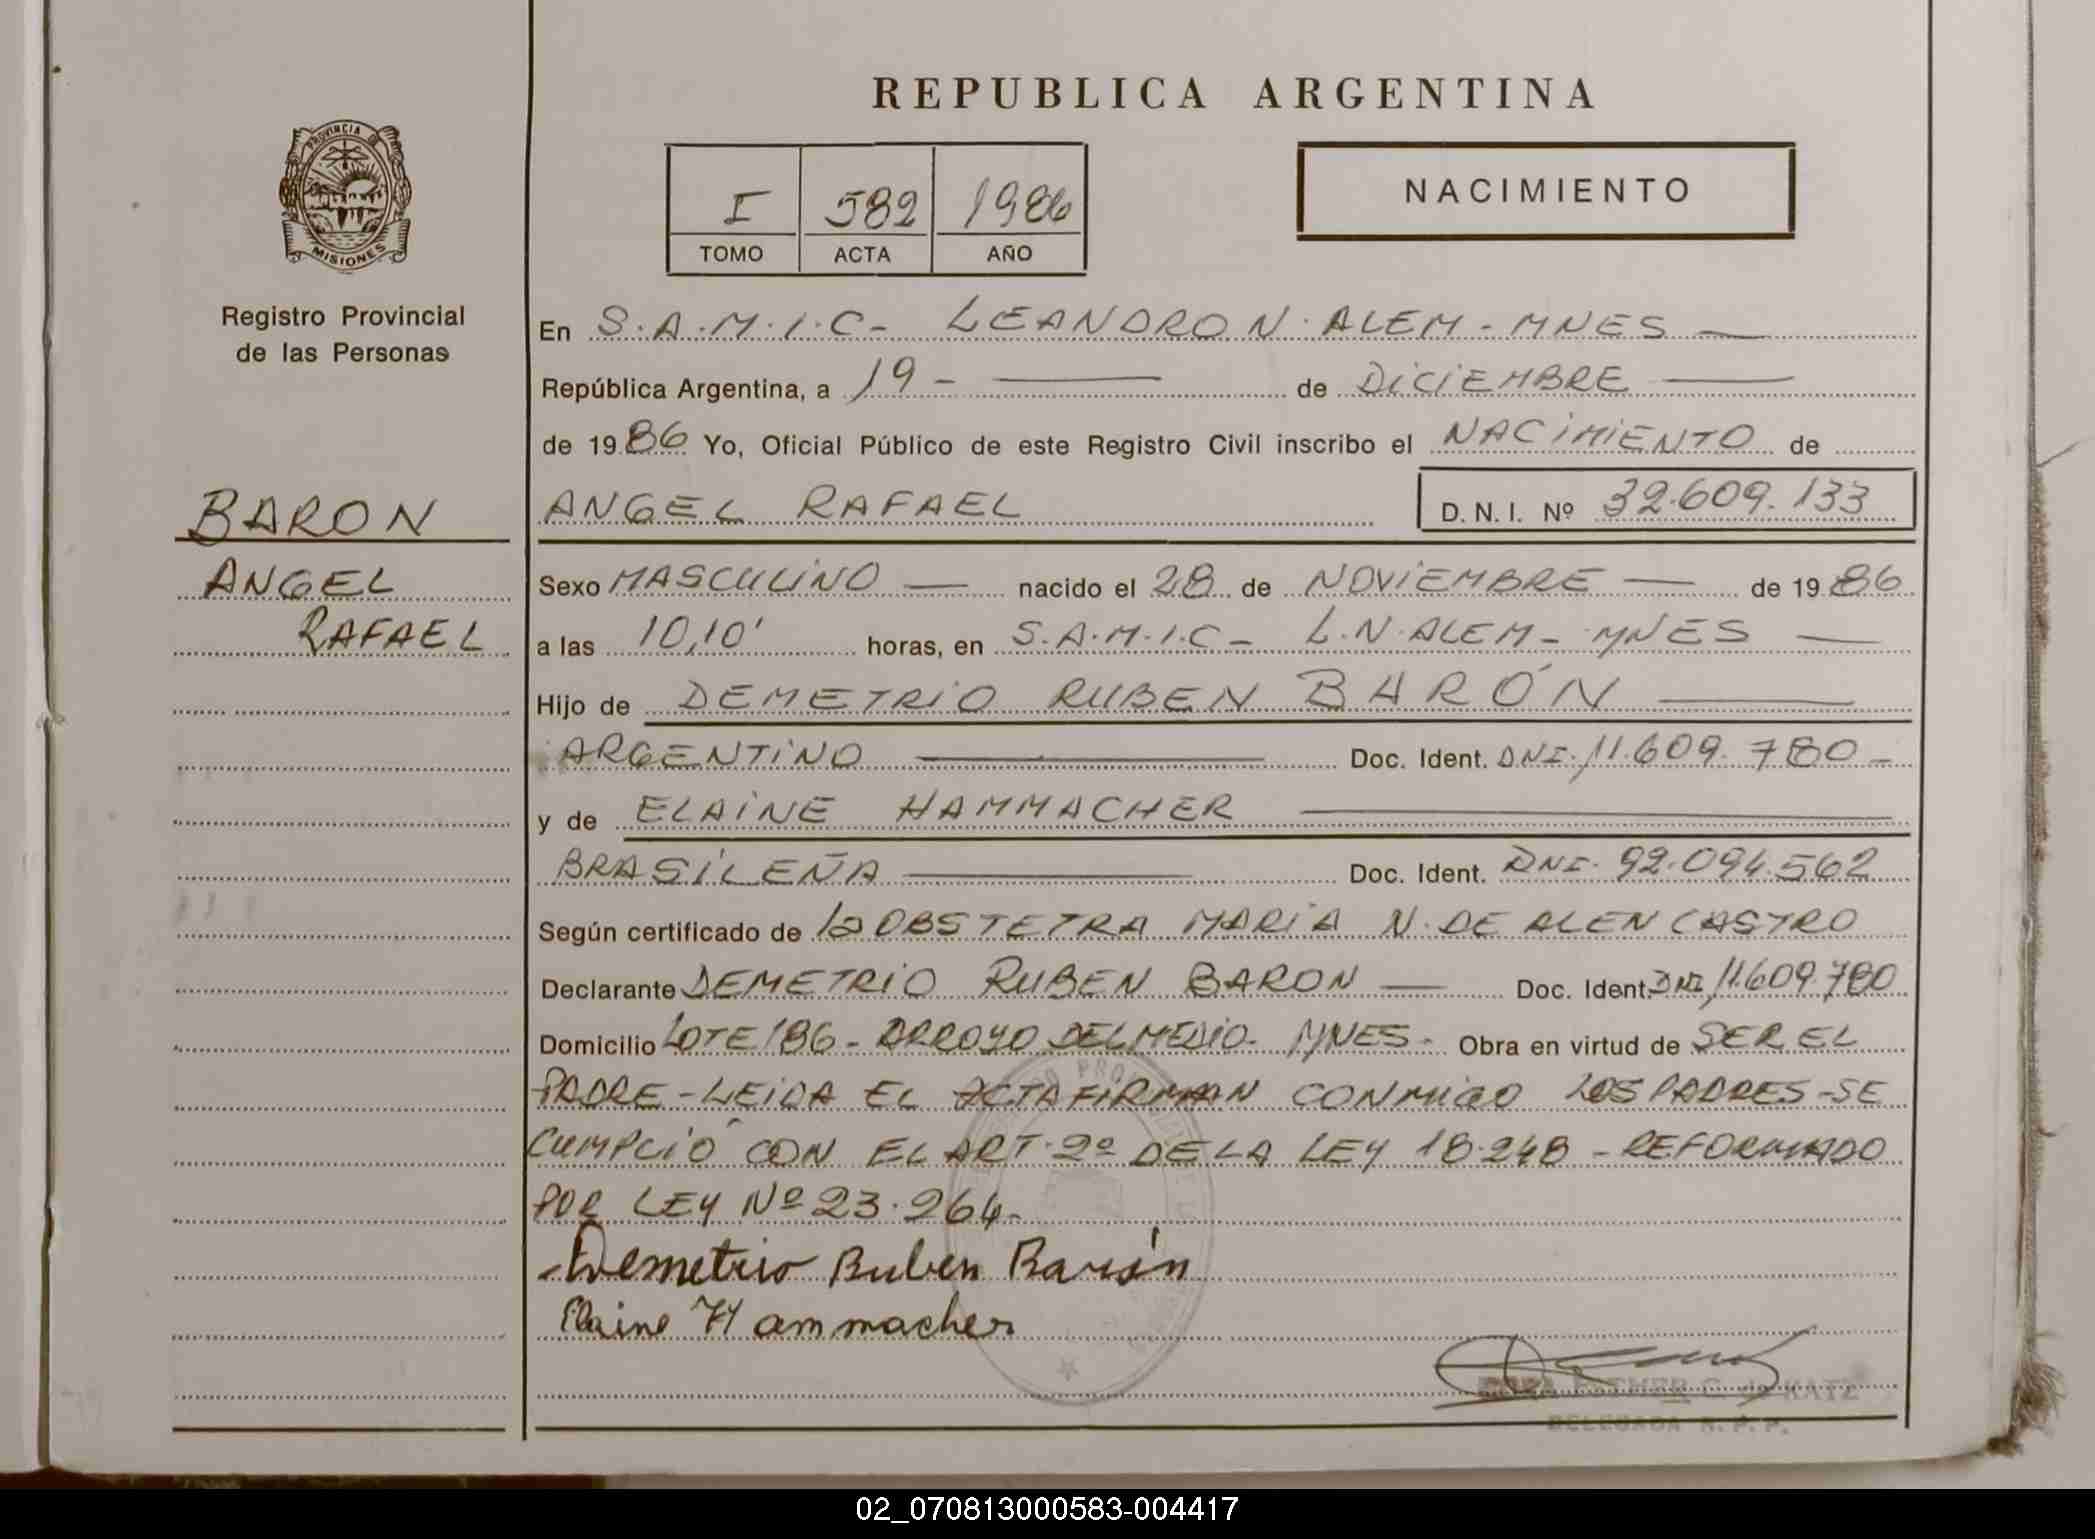 REPUBLICA ARGENTINA
PROVINCIA DE
MISIONES
Registro Provincial
de las Personas
I 582 1986
TOMO ACTA AÑO
NACIMIENTO
BARON
ANGEL
RAFAEL
En S.A.M.I.C- LEANDRO N. ALEM - MNES —
República Argentina, a 19 - — de DICIEMBRE —
de 1986 Yo, Oficial Público de este Registro Civil inscribo el NACIMIENTO de
ANGEL RAFAEL D. N. I. Nº 32.609.133
Sexo MASCULINO — nacido el 28 de NOVIEMBRE — de 1986
a las 10,10' horas, en S.A.M.I.C- L.N.ALEM - MNES —
Hijo de DEMETRIO RUBEN BARÓN —
ARGENTINO — Doc. Ident. DNI. 11.609.780 -
y de ELAINE HAMMACHER —
BRASILEÑA — Doc. Ident. DNI. 92.094.562
Según certificado de la OBSTETRA MARIA N. DE ALENCASTRO
Declarante DEMETRIO RUBEN BARON — Doc. Ident. DNI 11.609.780
Domicilio LOTE 186 - ARROYO DEL MEDIO - MNES - Obra en virtud de SER EL
PADRE - LEIDA EL ACTA FIRMAN CONMIGO LOS PADRES - SE
CUMPLIÓ CON EL ART. 2º DE LA LEY 18.248 - REFORMADO
POR LEY Nº 23.264 -
- Demetrio Ruben Barón
Elaine Hammacher
ESTHER C. de KATZ
DELEGADA R. P. P.
02_070813000583-004417